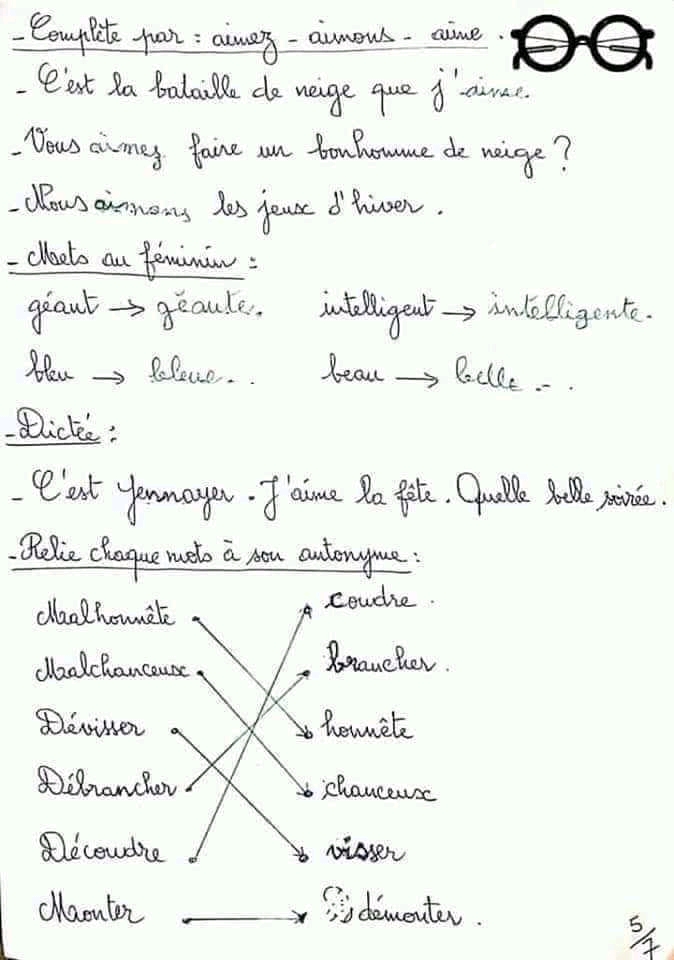 - Complète par : aimez - aimons - aime .
- C'est la bataille de neige que j'aime.
- Vous aimez faire un bonhomme de neige ?
- Nous aimons les jeux d'hiver .
- Mets au féminin :
géant → géante. intelligent → intelligente.
bleu → bleue. . beau → belle . - .
- Dictée :
- C'est Yennayer . J'aime la fête . Quelle belle soirée .
- Relie chaque mots à son antonyme :
Malhonnête coudre .
Malchanceux brancher .
Dévisser honnête
Débrancher chanceux
Découdre visser
Maonter démonter .
5/7